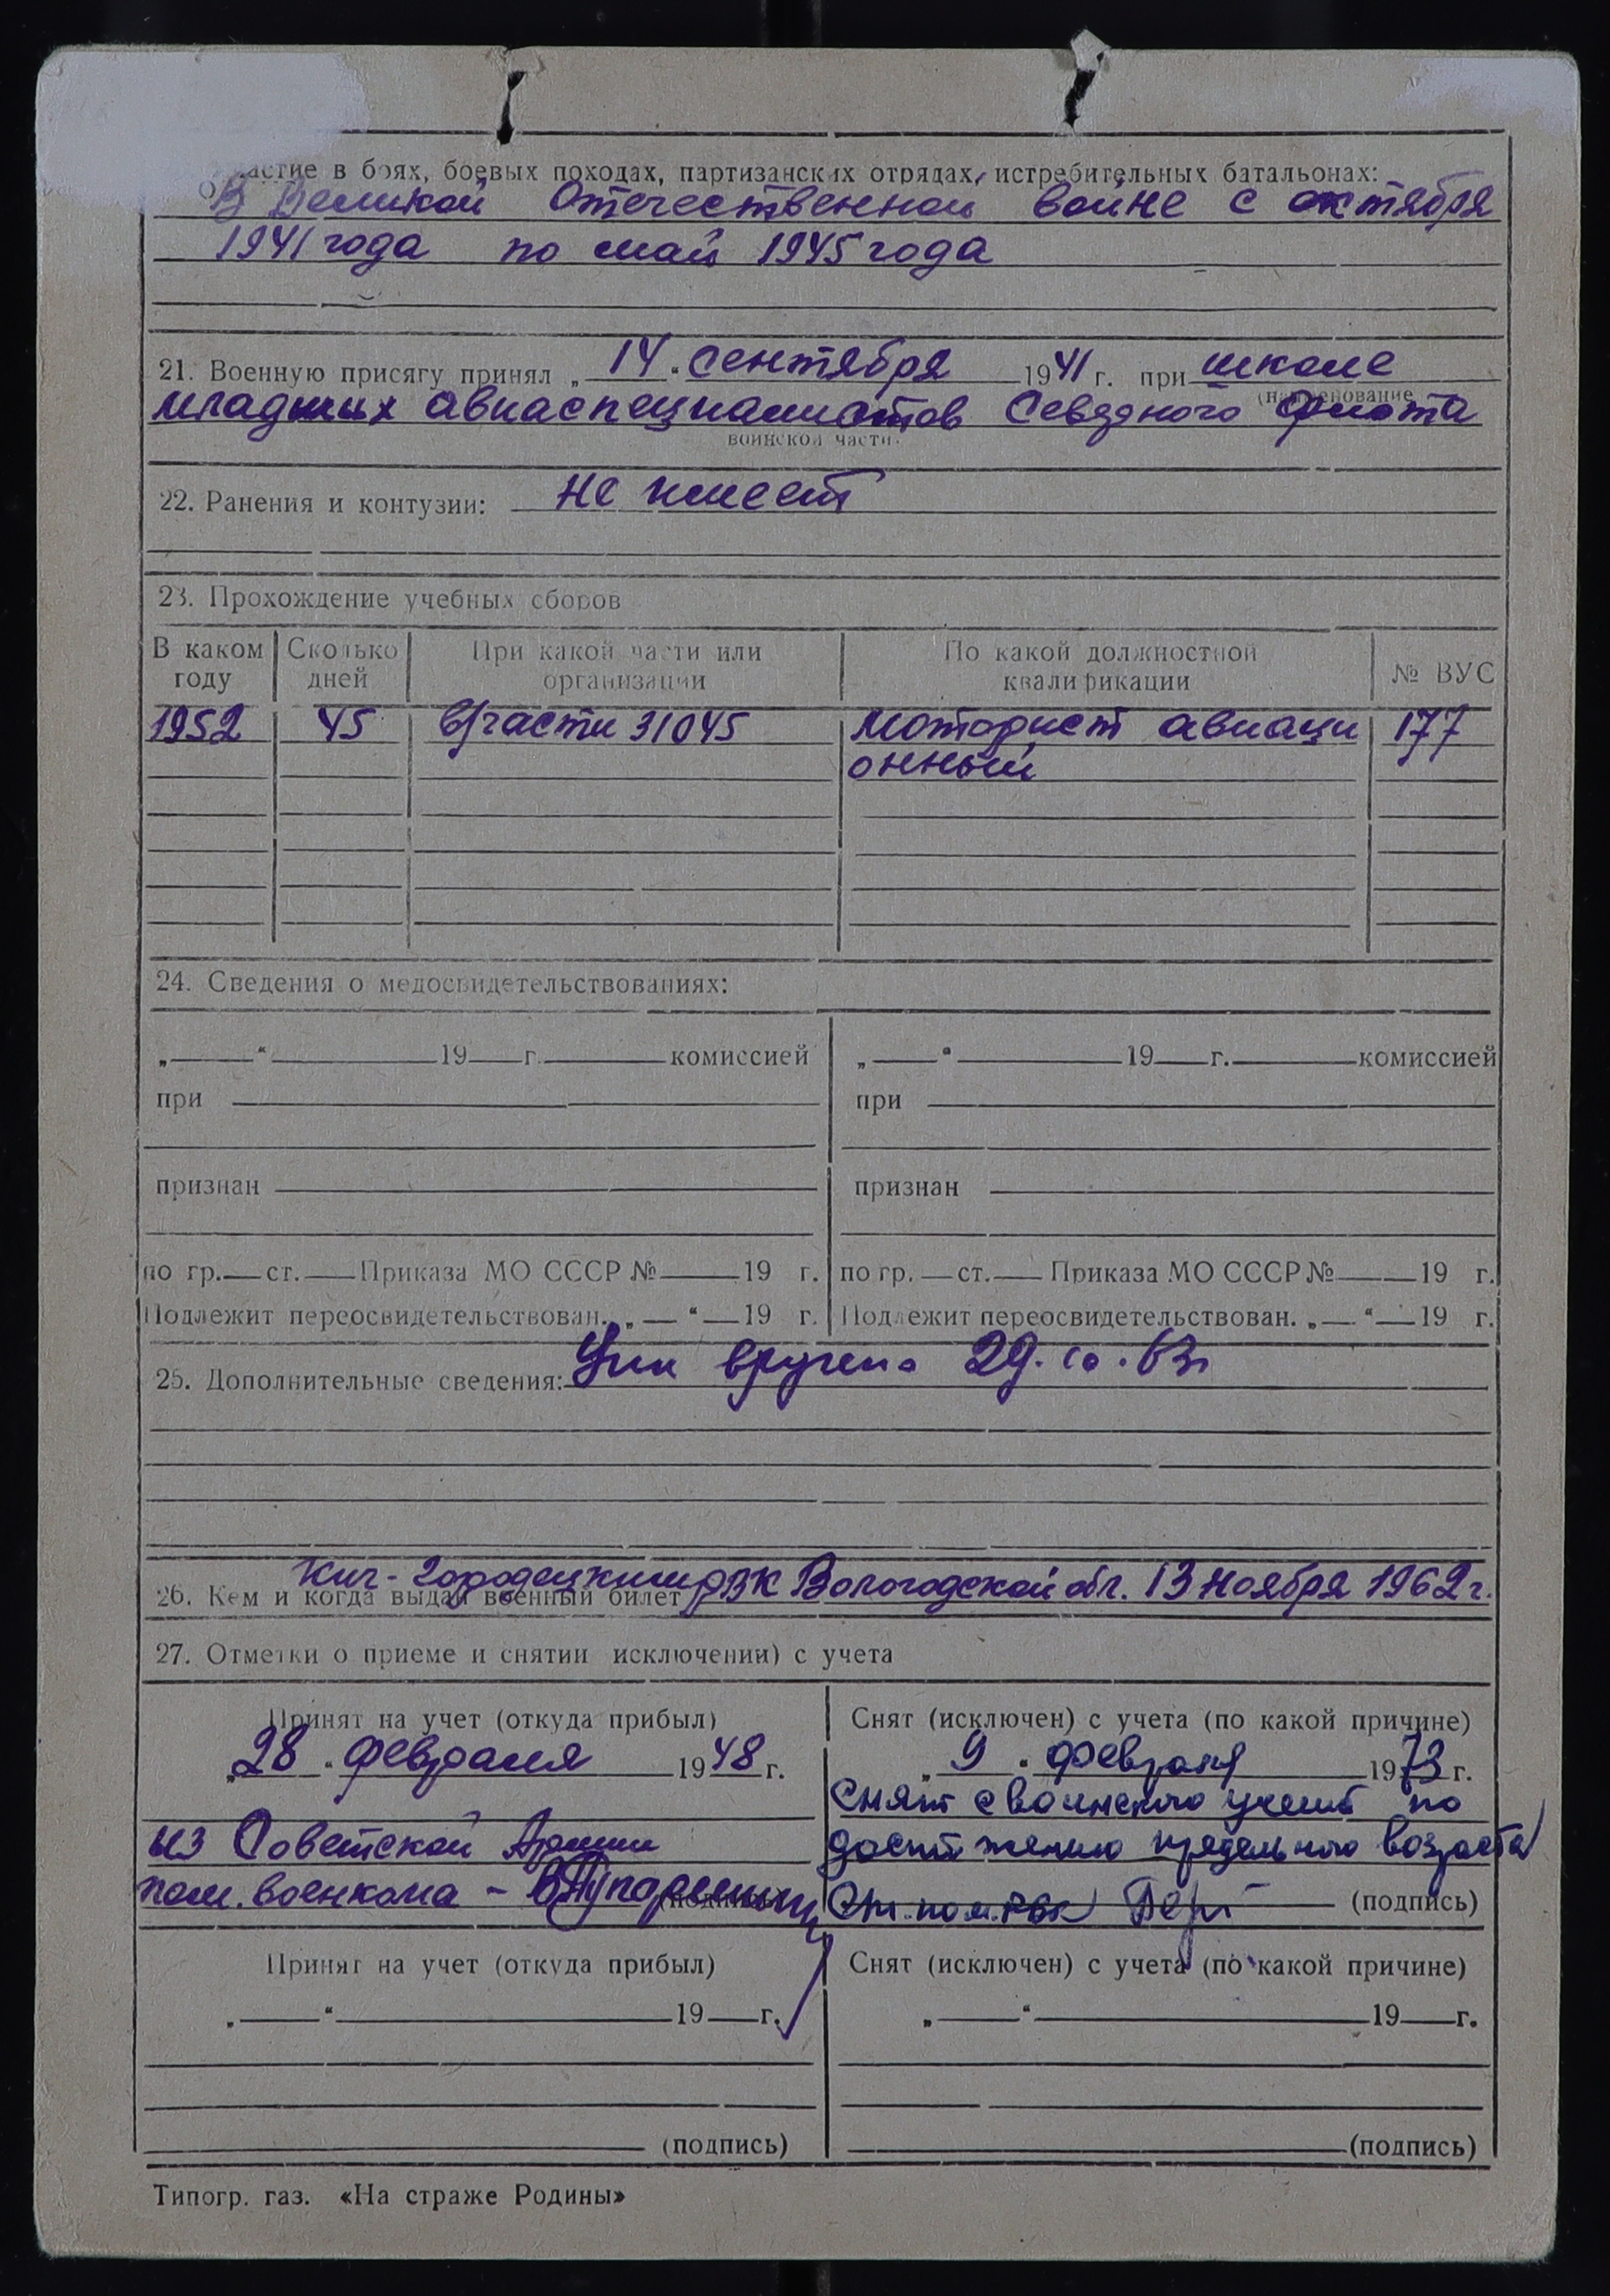 астие в боях, боевых походах, партизанских отрядах, истребительных батальонах:
В Великой Отечественной войне с октября
1941 года по май 1945 года
21. Военную присягу принял „14“ сентября 1941 г. при школе
(наименование
младших авиаспециалистов Северного флота
воинской части.
22. Ранения и контузии: не имеет
23. Прохождение учебных сборов
В каком году Сколько дней При какой части или организации По какой должностной квалификации № ВУС
1952 45 в/части 31045 моторист авиаци 177
онный
24. Сведения о медосвидетельствованиях:
„ “ 19 г. комиссией „ “ 19 г. комиссией
при при
признан признан
по гр. ст. Приказа МО СССР № 19 г. по гр. ст. Приказа МО СССР № 19 г.
Подлежит переосвидетельствован. „ “ 19 г. Подлежит переосвидетельствован. „ “ 19 г.
25. Дополнительные сведения: вручена 29.10.63г
26. Кем и когда выдан военный билет Кич-Городецким РВК Вологодской обл. 13 ноября 1962 г.
27. Отметки о приеме и снятии исключении) с учета
Принят на учет (откуда прибыл)
„28“ февраля 1948 г.
из Советской Армии
пом. военкома -
(подпись)
Снят (исключен) с учета (по какой причине)
„9“ февраля 1973 г.
Снят с воинского учета по
достижению предельного возраста
Ст. пом. РВК (подпись)
Принят на учет (откуда прибыл)
„ “ 19 г.
(подпись)
Снят (исключен) с учета (по какой причине)
„ “ 19 г.
(подпись)
Типогр. газ. «На страже Родины»